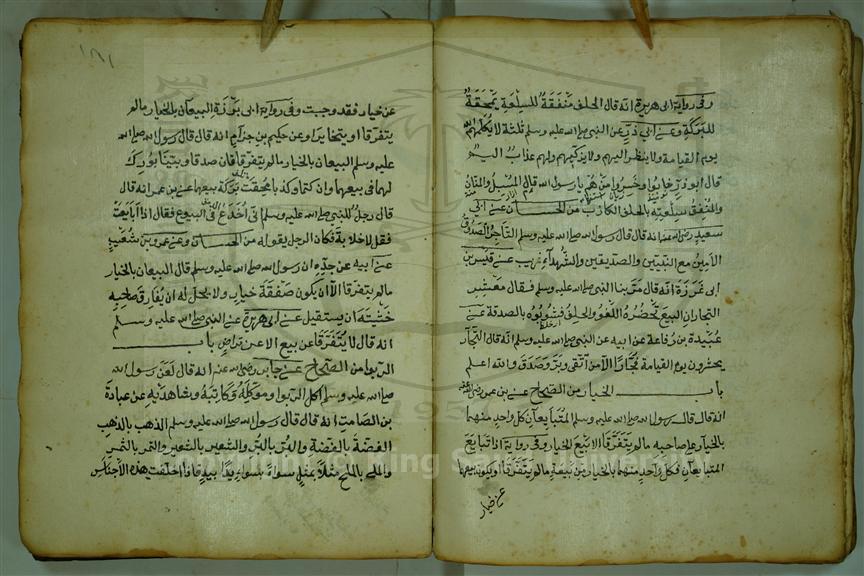 وفى رواية ابى هريرة انه قال الحلف منفقة للسلعة ممحقة
للبركة وعن ابى ذر عن النبى صلى الله عليه وسلم ثلثة لا يكلمهم الله
يوم القيامة ولا ينظر اليهم ولا يزكيهم ولهم عذاب اليم
قال ابو ذر خابوا وخسروا من هم يا رسول الله قال المسبل والمنان
والمنفق سلعته بالحلف الكاذب من الحسان عن ابى
سعيد رضى الله عنه انه قال قال رسول الله صلى الله عليه وسلم التاجر الصدوق
الامين مع النبيين والصديقين والشهداء غريب عن قيس بن
ابى غرزة انه قال مر بنا النبى صلى الله عليه وسلم فقال معشر
التجار ان البيع يحضره اللغو والحلف فشوبوه بالصدقة عن
عبيد بن رفاعة عن ابيه عن النبى صلى الله عليه وسلم انه قال التجار
يحشرون يوم القيامة فجارا الا من اتقى وبر وصدق والله اعلم
باب الخيار من الصحاح عن بن عمر رضى الله عنه
انه قال قال رسول الله صلى الله عليه وسلم المتبايعان كل واحد منهما
بالخيار على صاحبه ما لم يتفرقا الا بيع الخيار وفى رواية اذا تبايع
المتبايعان فكل واحد منهما بالخيار من بيعه ما لم يتفرقا او يكون بيعهما
عن خيار
١٨١
عن خيار فقد وجبت وفى رواية ابى برزة البيعان بالخيار ما لم
يتفرقا او يتخايرا وعن حكيم بن حزام انه قال قال رسول الله صلى الله
عليه وسلم البيعان بالخيار ما لم يتفرقا فان صدقا وبينا بورك
لهما فى بيعهما وان كتما وكذبا محقت بركة بيعهما عن بن عمر انه قال
قال رجل للنبى صلى الله عليه وسلم انى اخدع فى البيوع فقال اذا بايعت
فقل لا خلابة فكان الرجل يقوله من الحسان وعن عمرو بن شعيب
عن ابيه عن جده ان رسول الله صلى الله عليه وسلم قال البيعان بالخيار
ما لم يتفرقا الا ان يكون صفقة خيار ولا يحل له ان يفارق صاحبه
خشية ان يستقيل عن ابى هريرة عن النبى صلى الله عليه وسلم
انه قال لا يتفرقا عن بيع الا عن تراض باب
الربوا من الصحاح عن جابر رضى الله عنه انه قال لعن رسول الله
صلى الله عليه وسلم اكل الربوا وموكله وكاتبه وشاهديه عن عبادة
بن الصامت انه قال قال رسول الله صلى الله عليه وسلم الذهب بالذهب
الفضة بالفضة والبر بالبر والشعير بالشعير والتمر بالتمر
والملح بالملح مثلا بمثل سواء بسواء يدا بيد فاذا اختلفت هذه الاجناس